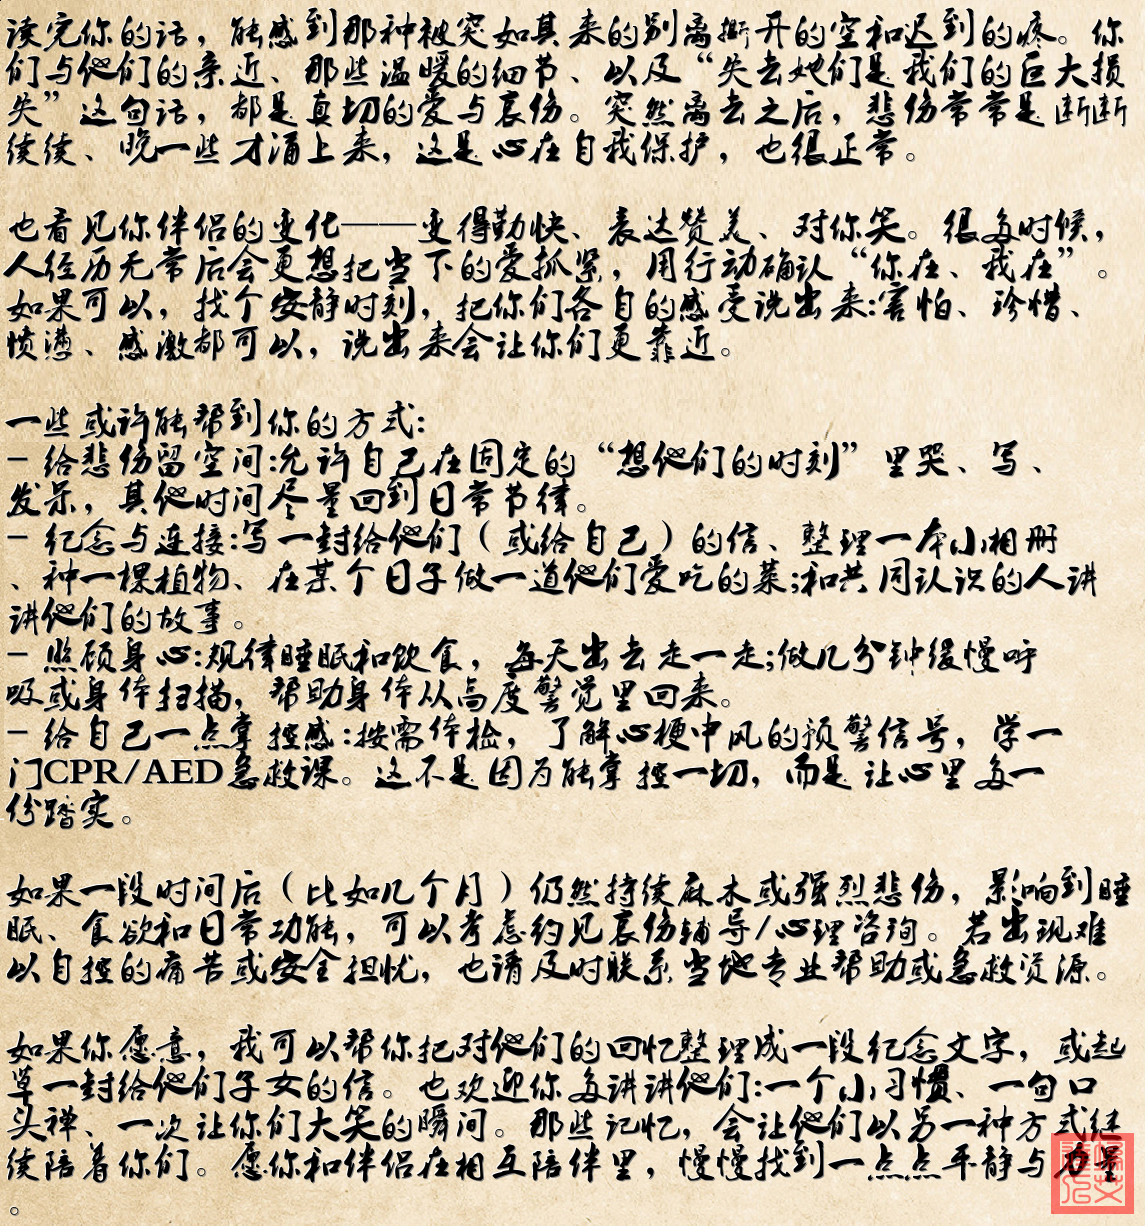 读完你的话，能感到那种被突如其来的别离撕开的空和迟到的疼。你
们与他们的亲近、那些温暖的细节、以及“失去她们是我们的巨大损
失”这句话，都是真切的爱与哀伤。突然离去之后，悲伤常常是断断
续续、晚一些才涌上来，这是心在自我保护，也很正常。
也看见你伴侣的变化——变得勤快、表达赞美、对你笑。很多时候，
人经历无常后会更想把当下的爱抓紧，用行动确认“你在、我在”。
如果可以，找个安静时刻，把你们各自的感受说出来:害怕、珍惜、
愤懑、感激都可以，说出来会让你们更靠近。
一些或许能帮到你的方式:
- 给悲伤留空间:允许自己在固定的“想他们的时刻”里哭、写、
发呆，其他时间尽量回到日常节律。
- 纪念与连接:写一封给他们（或给自己）的信、整理一本小相册
、种一棵植物、在某个日子做一道他们爱吃的菜;和共同认识的人讲
讲他们的故事。
- 照顾身心:规律睡眠和饮食，每天出去走一走;做几分钟缓慢呼
吸或身体扫描，帮助身体从高度警觉里回来。
- 给自己一点掌控感:按需体检，了解心梗中风的预警信号，学一
门CPR/AED急救课。这不是因为能掌控一切，而是让心里多一
份踏实。
如果一段时间后（比如几个月）仍然持续麻木或强烈悲伤，影响到睡
眠、食欲和日常功能，可以考虑约见哀伤辅导/心理咨询。若出现难
以自控的痛苦或安全担忧，也请及时联系当地专业帮助或急救资源。
如果你愿意，我可以帮你把对他们的回忆整理成一段纪念文字，或起
草一封给他们子女的信。也欢迎你多讲讲他们:一个小习惯、一句口
头禅、一次让你们大笑的瞬间。那些记忆，会让他们以另一种方式继
续陪着你们。愿你和伴侣在相互陪伴里，慢慢找到一点点平静与力量
。